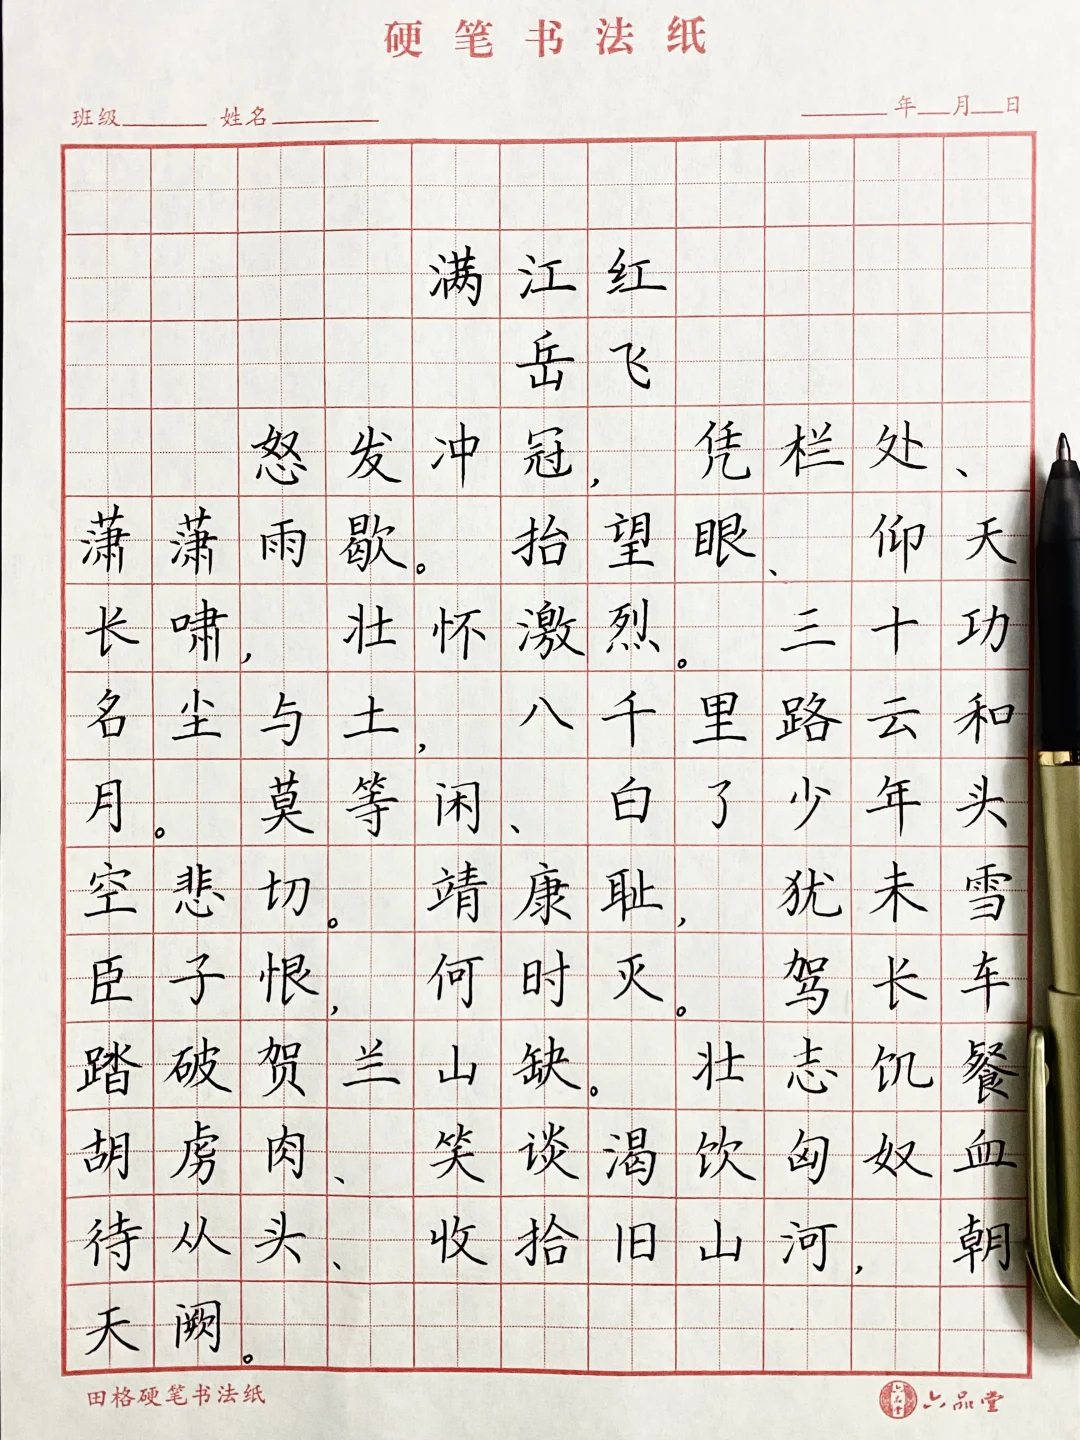 硬笔书法纸
班级 姓名 年 月 日
满江红
岳飞
怒发冲冠，凭栏处、
潇潇雨歇。抬望眼、仰天
长啸，壮怀激烈。三十功
名尘与土，八千里路云和
月。莫等闲、白了少年头
空悲切。靖康耻，犹未雪
臣子恨，何时灭。驾长车
踏破贺兰山缺。壮志饥餐
胡虏肉、笑谈渴饮匈奴血
待从头、收拾旧山河，朝
天阙。
田格硬笔书法纸
六品堂 六品堂